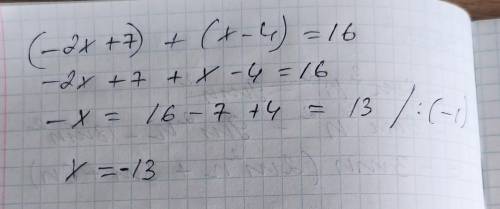 (-2x+7) + (x-4) = 16
-2x+7 + x-4 = 16
-x = 16-7+4 = 13 /:(-1)
x = -13